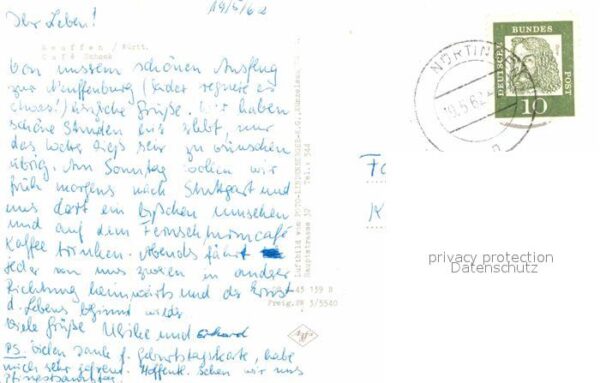 19/5/62
Ihr Lieben!
Neuffen / Württ.
Café Schenk
Von unserem schönen Ausflug
zur Neuffenburg (leider regnete es
etwas!) herzliche Grüße. Wir haben
schöne Stunden hier erlebt, nur
das Wetter ließ sehr zu wünschen
übrig. Am Sonntag wollen wir
früh morgens nach Stuttgart und
uns dort ein bißchen umsehen
und auf dem Fernsehturmcafé
Kaffee trinken. Abends fährt
jeder von uns zweien in andrer
Richtung heimwärts und der Ernst
d. Lebens beginnt wieder
Viele Grüße Ulrike und Erhard
PS. Vielen Dank f. Geburtstagskarte, habe
mich sehr gefreut. Hoffentl. sehen wir uns
Pfingstsamstag.
Hauptstrasse 37 Tel. 344
45 139 B
Freig. 3/5540
Agfa
NÜRTINGEN
19.5.62
DEUTSCHE
BUNDES
POST
10
privacy protection
Datenschutz